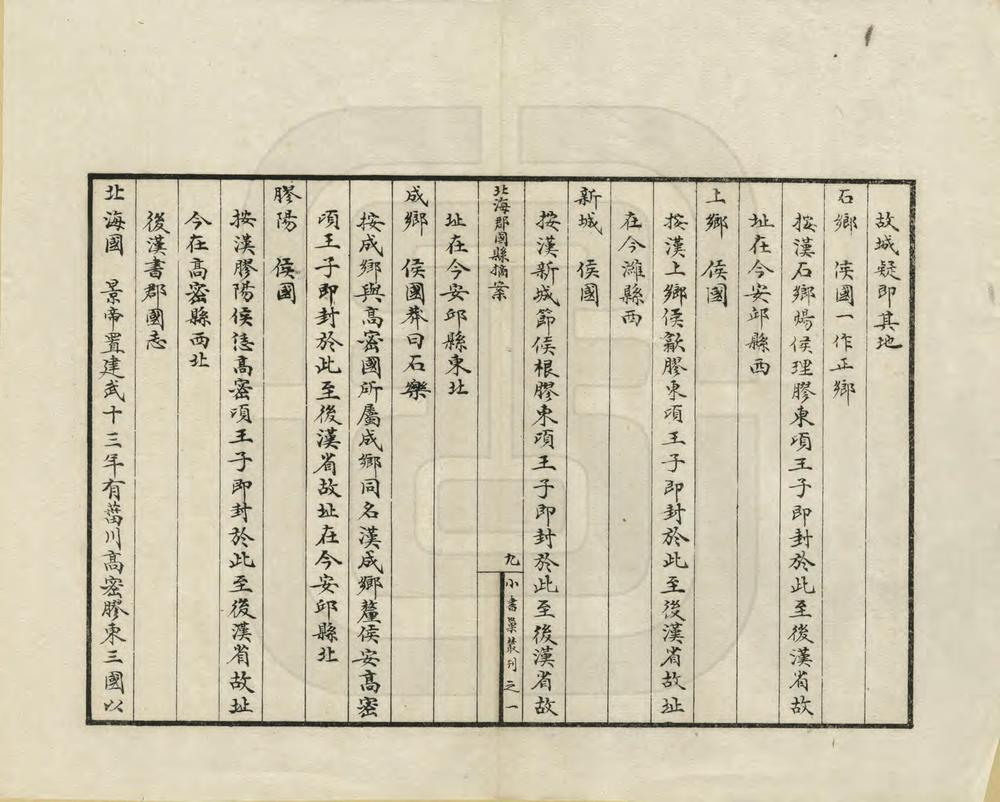 故城疑即其地
石鄉　侯國一作正鄉
按漢石鄉煬侯理膠東頃王子即封於此至後漢省故
址在今安邱縣西
上鄉　侯國
按漢上鄉侯歙膠東頃王子即封於此至後漢省故址
在今濰縣西
新城　侯國
按漢新城節侯根膠東頃王子即封於此至後漢省故
北海郡國縣摘案
九
小書巢叢刊之一
址在今安邱縣東北
成鄉　侯國莽曰石樂
按成鄉與高密國所屬成鄉同名漢成鄉釐侯安高密
頃王子即封於此至後漢省故址在今安邱縣北
膠陽　侯國
按漢膠陽侯恁高密頃王子即封於此至後漢省故址
今在高密縣西北
後漢書郡國志
北海國　景帝置建武十三年有菑川高密膠東三國以